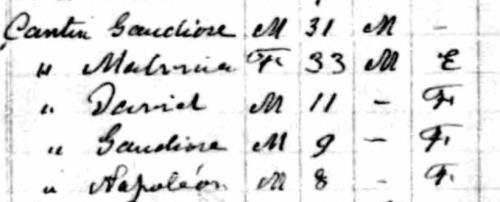 Cantin Gaudiose M 31 M -
" Malvina F 33 M E
" David M 11 - F
" Gaudiose M 9 - F
" Napoléon M 8 - F